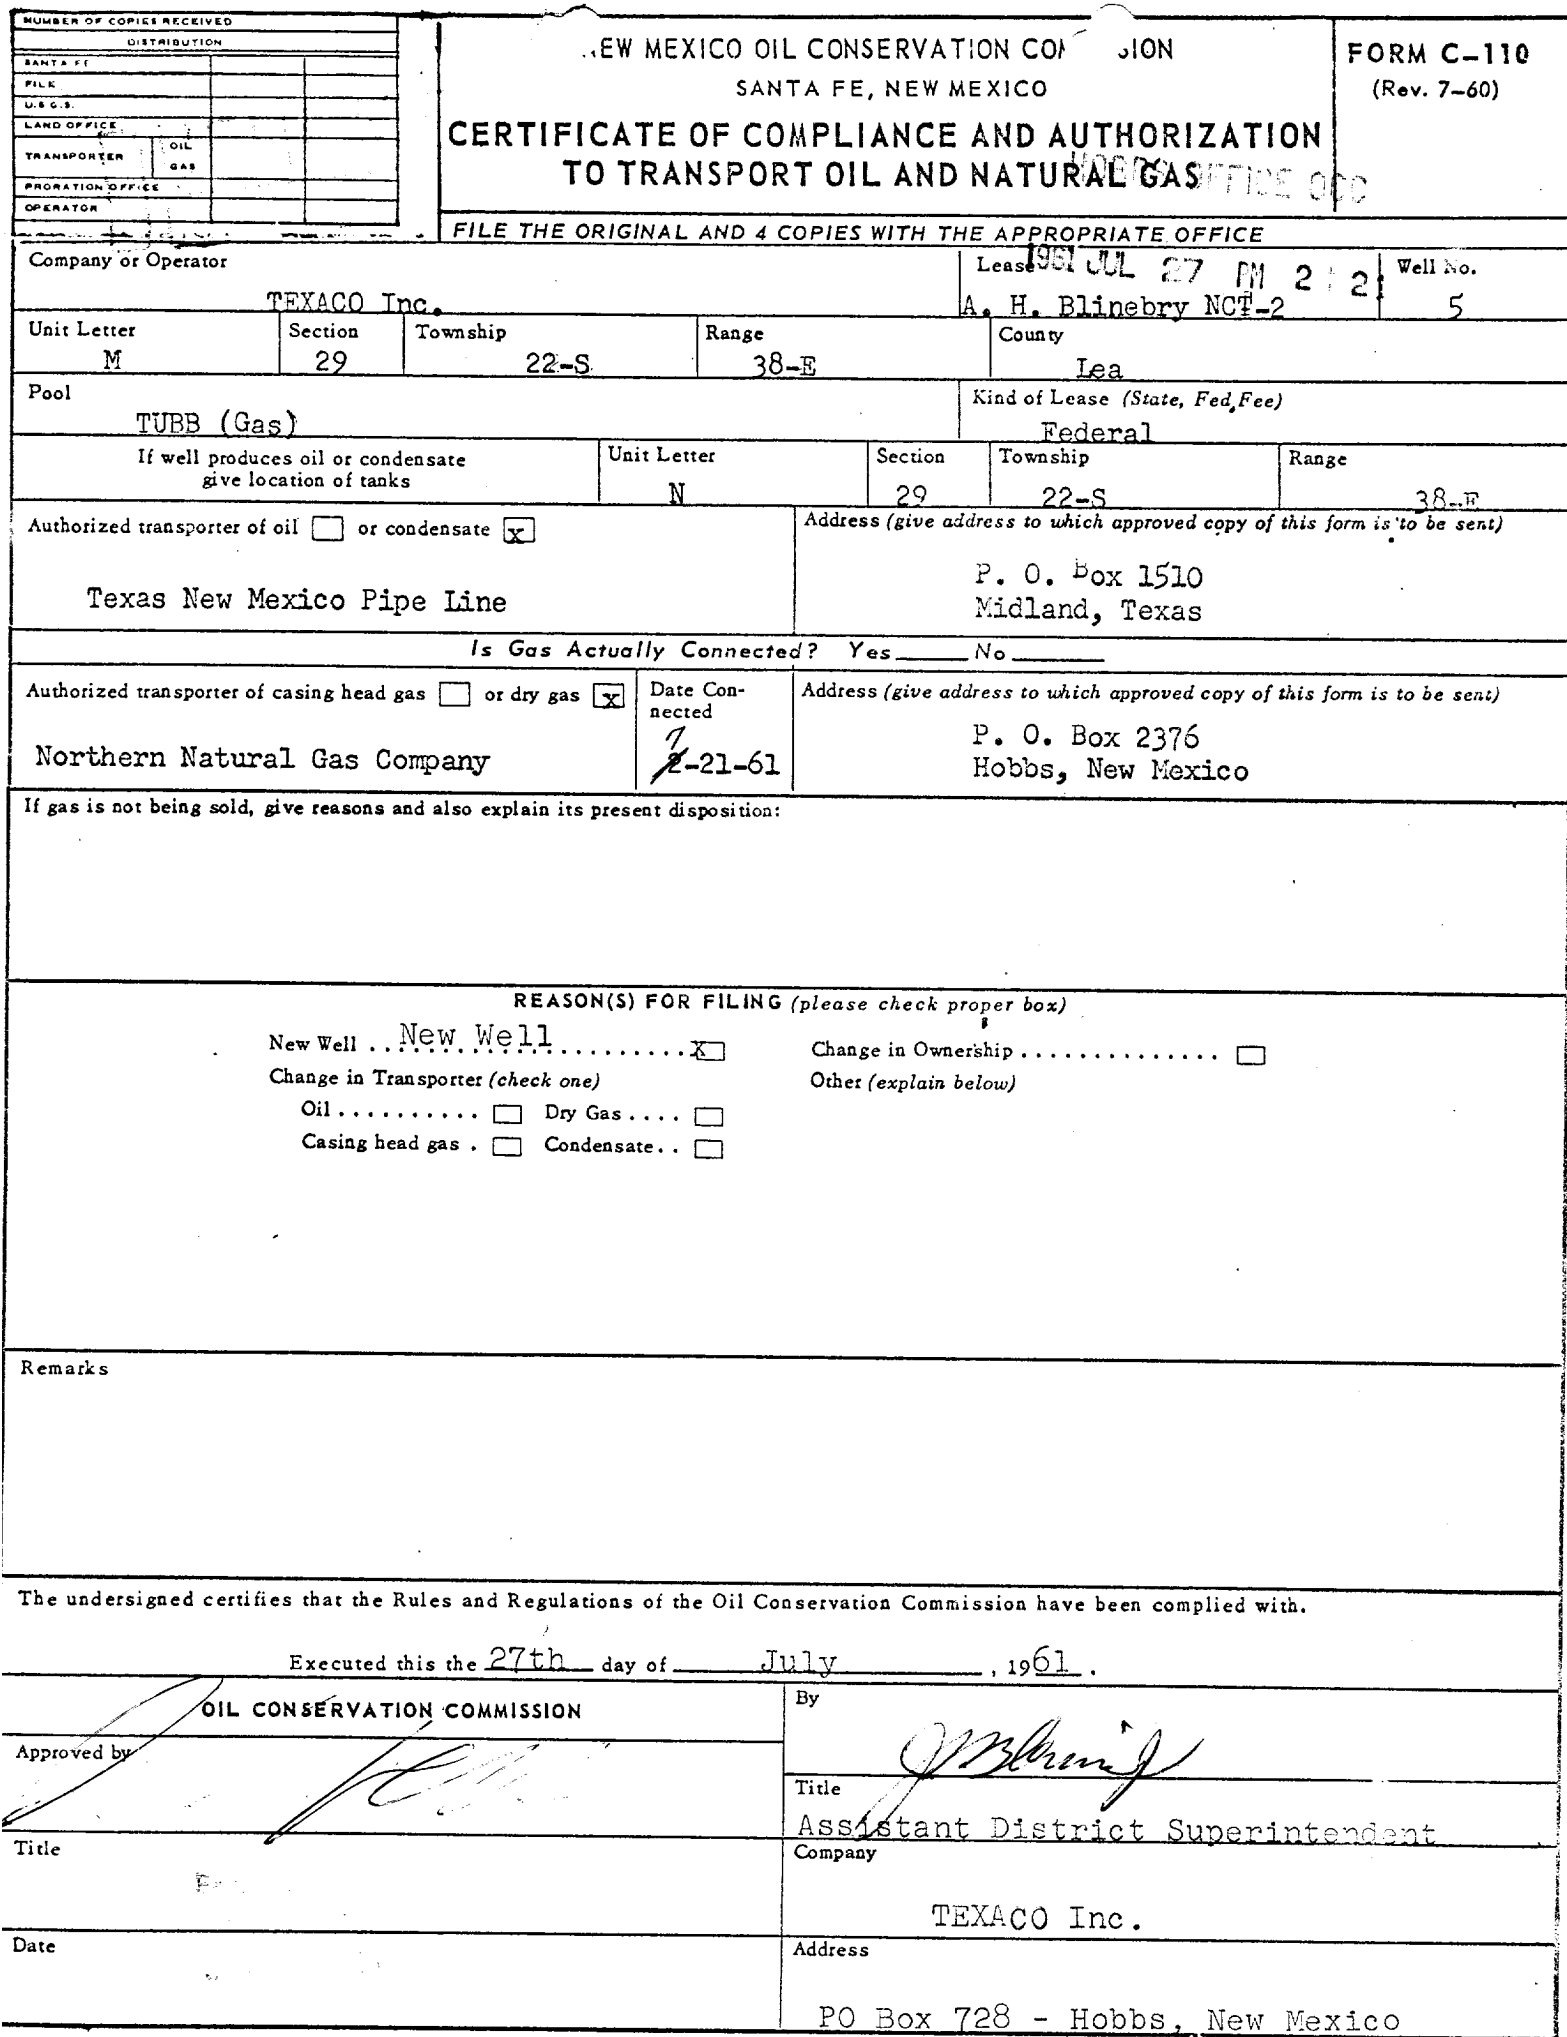 NUMBER OF COPIES RECEIVED
DISTRIBUTION
SANTA FE
FILE
U.S.G.S.
LAND OFFICE
TRANSPORTER OIL
GAS
PRORATION OFFICE
OPERATOR
.EW MEXICO OIL CONSERVATION COM SION
SANTA FE, NEW MEXICO
CERTIFICATE OF COMPLIANCE AND AUTHORIZATION
TO TRANSPORT OIL AND NATURAL GAS
HOBBS OFFICE OCC
FORM C-110
(Rev. 7-60)
FILE THE ORIGINAL AND 4 COPIES WITH THE APPROPRIATE OFFICE
Company or Operator
TEXACO Inc.
Lease
1961 JUL 27 PM 2 : 21
A. H. Blinebry NCT-2
Well No.
5
Unit Letter Section Township Range County
M 29 22-S 38-E Lea
Pool
TUBB (Gas)
Kind of Lease (State, Fed, Fee)
Federal
If well produces oil or condensate
give location of tanks
Unit Letter Section Township Range
N 29 22-S 38-E
Authorized transporter of oil or condensate x
Texas New Mexico Pipe Line
Address (give address to which approved copy of this form is to be sent)
P. O. Box 1510
Midland, Texas
Is Gas Actually Connected? Yes No
Authorized transporter of casing head gas or dry gas x
Northern Natural Gas Company
Date Con-
nected
7
-21-61
Address (give address to which approved copy of this form is to be sent)
P. O. Box 2376
Hobbs, New Mexico
If gas is not being sold, give reasons and also explain its present disposition:
REASON(S) FOR FILING (please check proper box)
New Well . . New Well . . . . . . . . . . X
Change in Ownership . . . . . . . . . . . . . .
Change in Transporter (check one)
Other (explain below)
Oil . . . . . . . . . . Dry Gas . . . .
Casing head gas . Condensate . .
Remarks
The undersigned certifies that the Rules and Regulations of the Oil Conservation Commission have been complied with.
Executed this the 27th day of July , 1961 .
OIL CONSERVATION COMMISSION
Approved by
Title
Date
By
Title
Assistant District Superintendent
Company
TEXACO Inc.
Address
PO Box 728 - Hobbs, New Mexico